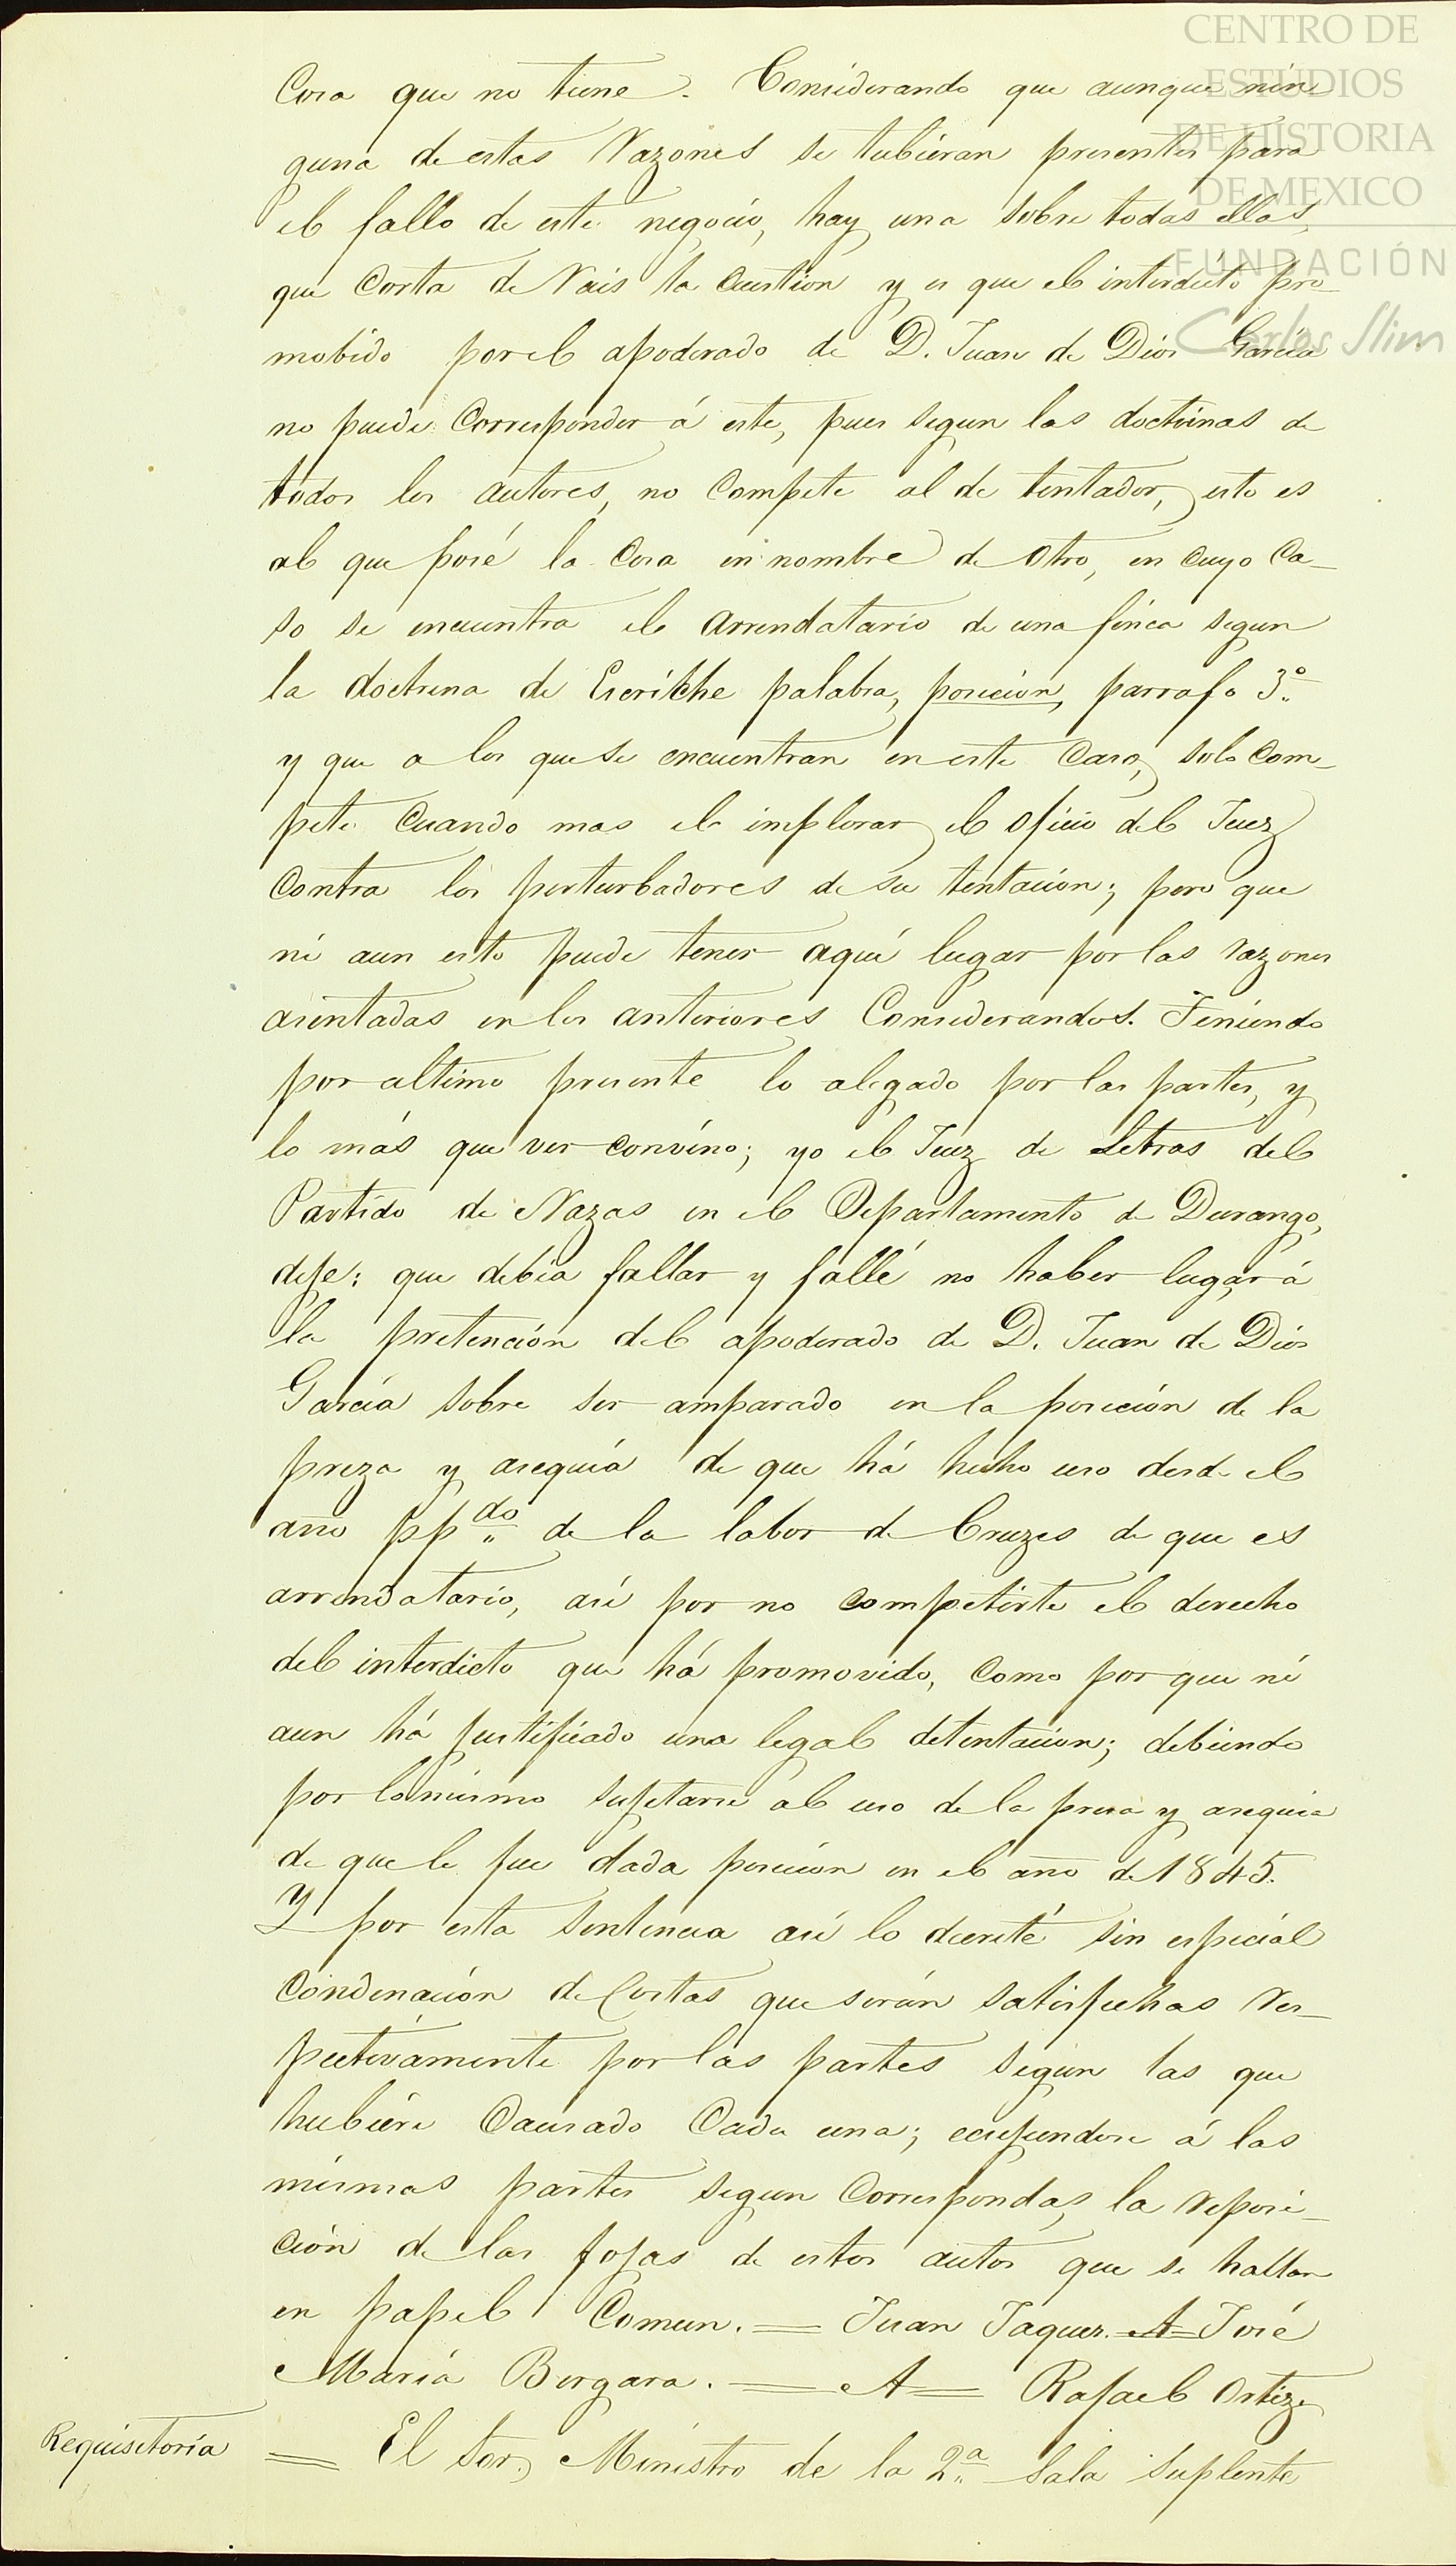 CENTRO DE
ESTUDIOS
DE HISTORIA
DE MEXICO
FUNDACIÓN
Carlos Slim
Cosa que no tiene. Considerando que aunque nin
guna de estas razones se tubieran presentes para
el fallo de este negocio, hay una sobre todas ellas,
que corta de rais la cuestion y es que el interdicto pro-
mobido por el apoderado de D. Juan de Dios García
no puede corresponder á este, pues segun las doctrinas de
todos los autores, no compete al de tentador, esto es
al que posé la cosa en nombre de otro, en cuyo ca-
so se encuentra el arrendatario de una finca segun
la doctrina de Escriche palabra, posecion, parrafo 3º
y que a los que se encuentran en este caso, solo com-
pete cuando mas el implorar el oficio del Juez
contra los perturbadores de su tentacion; pero que
ni aun esto puede tener aquí lugar por las razones
asentadas en los anteriores Considerandos. Teniendo
por ultimo presente lo alegado por las partes, y
lo más que ver convino; yo el Juez de Letras del
Partido de Nazas en el Departamento de Durango,
dije: que debía fallar y fallé no haber lugar á
la pretención del apoderado de D. Juan de Dios
García sobre ser amparado en la posecion de la
preza y asequia de que há hecho uso desde el
año ppdo de la labor de Cruzes de que es
arrendatario, así por no competirle el derecho
del interdicto que há promovido, como por que ni
aun há justificado una legal detentacion; debiendo
por lo mismo sujetarse al uso de la presa y asequia
de que le fue dada posecion en el año de 1845.
Y por esta sentencia así lo decreté sin especial
condenación de Costas que serán satisfechas res-
pectivamente por las partes según las que
hubiere causado cada una; ecsijiendose á las
mismas partes segun corresponda, la reposi-
ción de las fojas de estos autos que se hallan
en papel comun. = Juan Jaques. = A = José
María Bergara. = A = Rafael Ortiz
Requisitoria
= El Sor. Ministro de la 2ª Sala Suplente